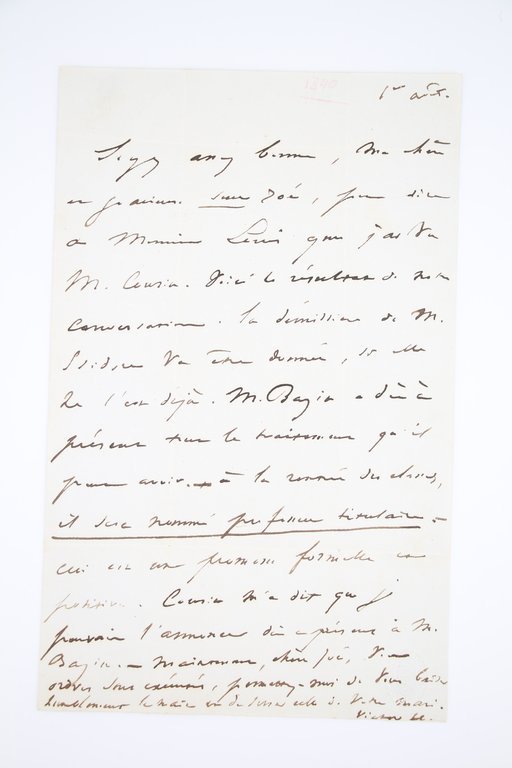 1840
1er août.
Soyez assez bonne, ma chère
et gracieuse sœur Zoé, pour dire
à Monsieur Louis que j'ai vu
M. Cousin. Voici le résultat de notre
conversation. La démission de M.
va être donnée, si elle
ne l'est déjà. M. Bazin a dès à
présent tout le traitement qu'il
peut avoir. - à la rentrée des classes,
il sera nommé professeur titulaire -
ceci est une promesse formelle et
positive. Cousin m'a dit que je
pouvais l'annoncer dès à présent à M.
Bazin. - maintenant, chère Zoé, vos
ordres sont exécutés, permettez-moi de vous baiser
humblement la main et de serrer celle de votre mari.
Victor H.